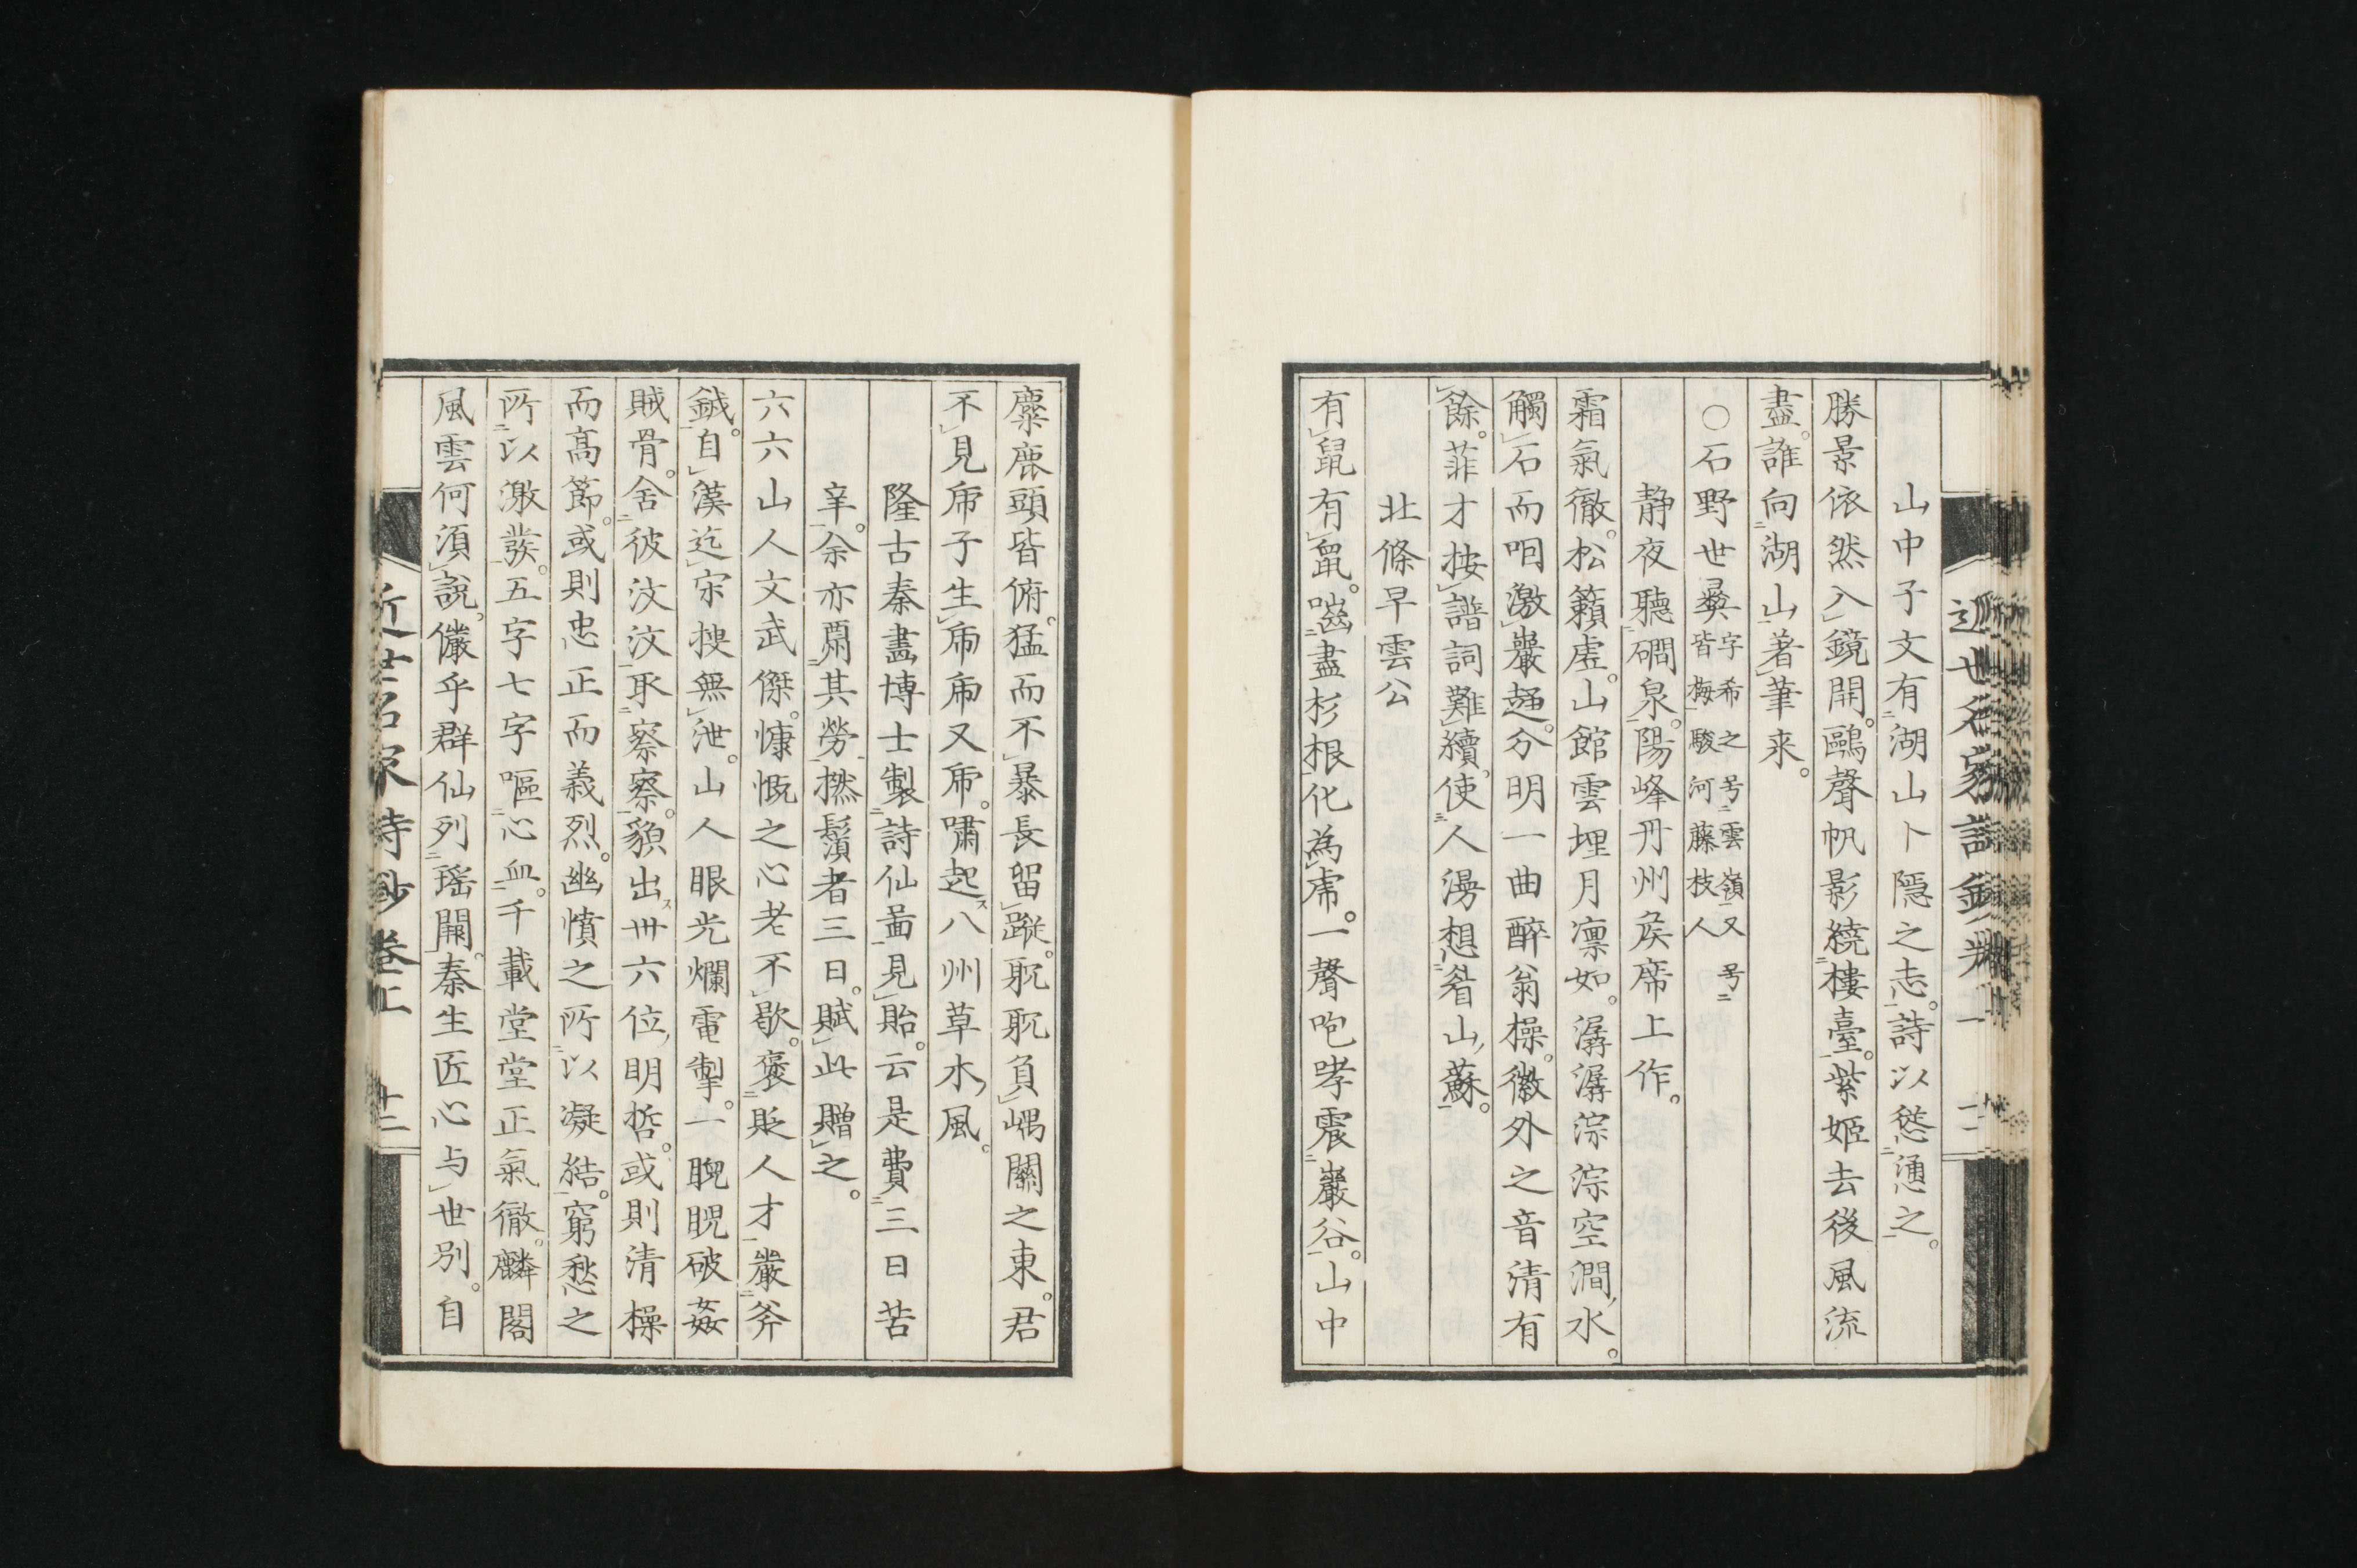 山中子文有湖山卜隱之志。詩以慫慂之。
勝景依然入鏡開。鷗聲帆影繞樓臺。紫姬去後風流
盡。誰向湖山著筆來。
○石野世彜字希之号雲嶺又号
皆梅駿河藤枝人
靜夜聽磵泉。陽峰丹州矦席上作。
霜氣徹。松籟虛。山館雲埋月凛如。潺潺淙淙空澗水。
觸石而咽激巖趨。分明一曲醉翁操。徽外之音清有
餘。菲才按譜詞難續。使人漫想眉山蘇。
北條早雲公
有鼠有鼠。嚙盡杉根化為虎。一聲咆哮震巖谷。山中
麋鹿頭皆俯。猛而不暴長留蹤。眈眈負嵎關之東。君
不見虎子生虎虎又虎。嘯起八州草木風。
隆古秦畫博士製詩仙啚見貽。云是費三日苦
辛。余亦齅其勞撚鬚者三日。賦此贈之。
六六山人文武傑。慷慨之心老不歇。褒貶人才嚴斧
鉞。自漢迄宋搜無泄。山人眼光爛電掣。一睨睨破姦
賊骨。舍彼汶汶取察察。貌出卅六位明哲。或則清操
而高節。或則忠正而義烈。幽憤之所以凝結。窮愁之
所以激發。五字七字嘔心血。千載堂堂正氣徹。麟閣
風雲何須說。儼乎群仙列瑤闕。秦生匠心与世別。自
近世名家詩鈔卷上 十二